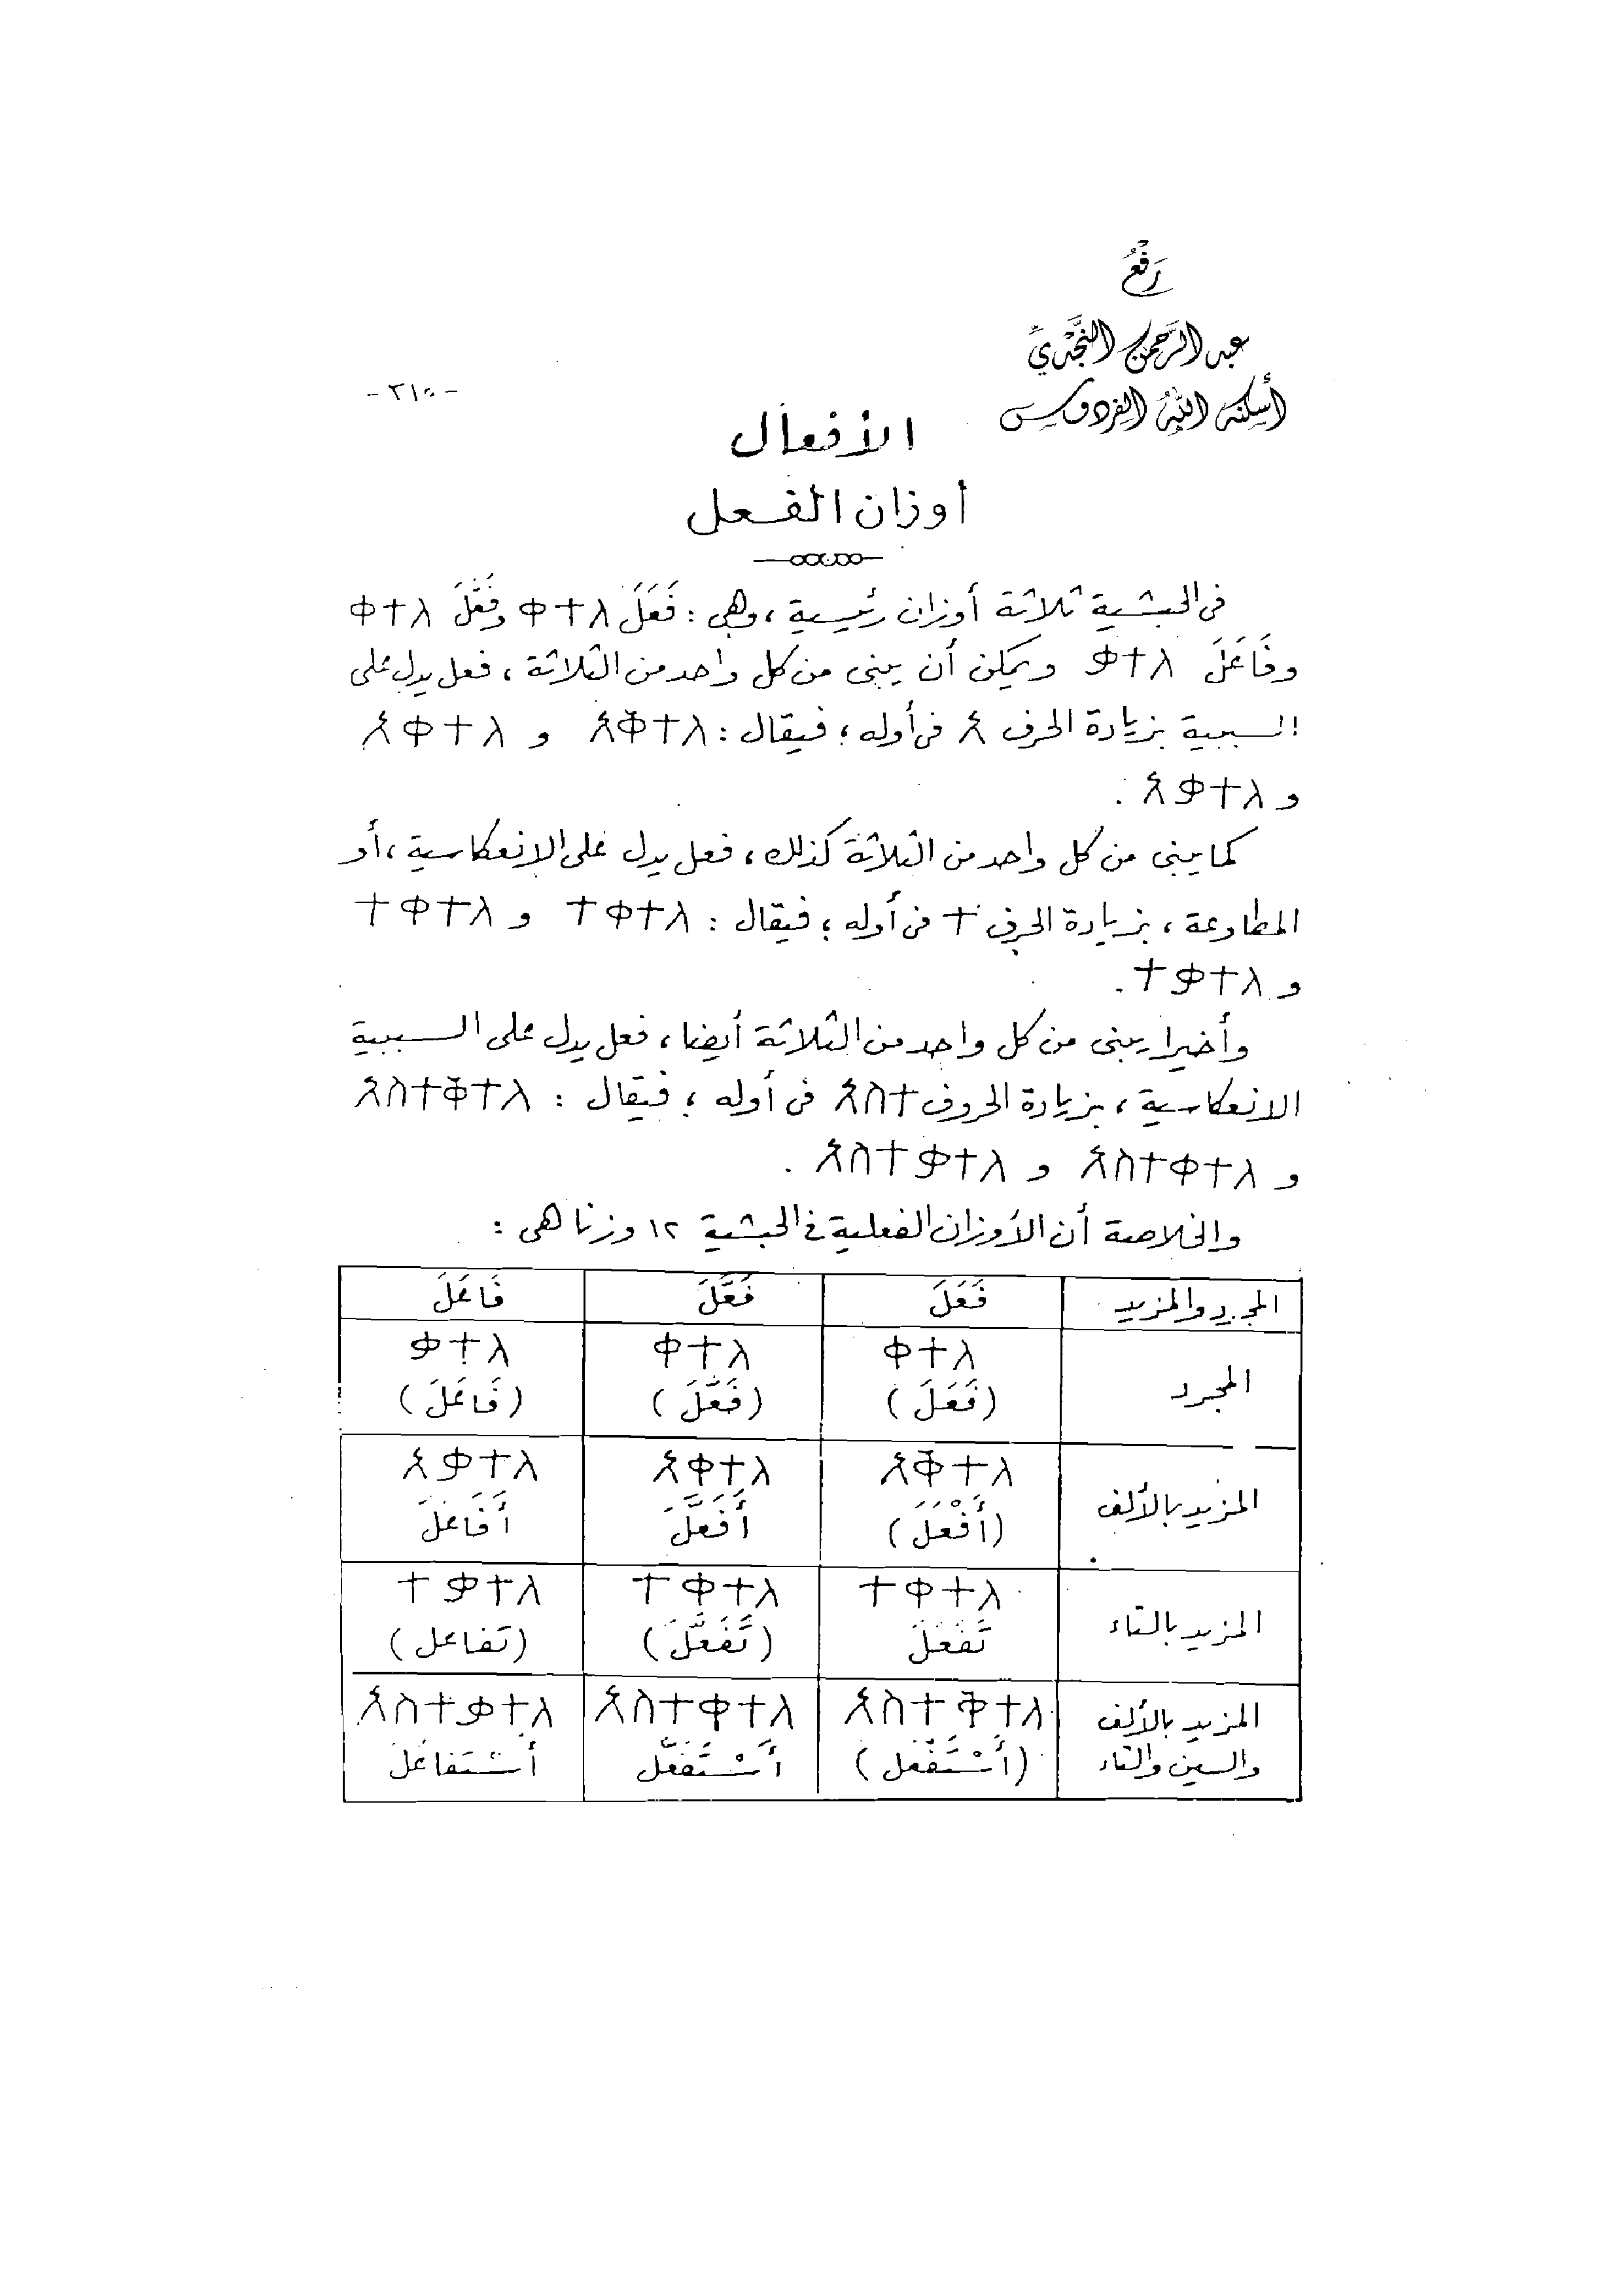 رَفْعُ
عبد الرَّحمن النَّجْديِّ
أسكنه اللهُ الفردوس
-٣١٥-
الأفعال
أوزان الفعل
فى الحبشية ثلاثة أوزان رئيسية، وهى: فَعَلَ ቀተለ وفَعَّلَ ቀተለ
وفَاعَلَ ቃተለ ويمكن أن يبنى من كل واحد من الثلاثة، فعل يدل على
السببية بزيادة الحرف አ فى أوله؛ فيقال: አቅተለ و አቀተለ
و አቃተለ.
كما يبنى من كل واحد من الثلاثة كذلك، فعل يدل على الانعكاسية، أو
المطاوعة، بزيادة الحرف ተ فى أوله؛ فيقال: ተቀተለ و ተቀተለ
و ተቃተለ.
وأخيرا يبنى من كل واحد من الثلاثة أيضا، فعل يدل على السببية
الانعكاسية، بزيادة الحروف አስተ فى أوله؛ فيقال: አስተቅተለ
و አስተቀተለ و አስተቃተለ.
والخلاصة أن الأوزان الفعلية فى الحبشية ١٢ وزنا هى:
المجرد والمزيد فَعَلَ فَعَّلَ فَاعَلَ
المجرد ቀተለ ቀተለ ቃተለ
(فَعَلَ) (فَعَّلَ) (فَاعَلَ)
المزيد بالألف አቅተለ አቀተለ አቃተለ
(أَفْعَلَ) أَفَعَّلَ أَفَاعَلَ
المزيد بالتاء ተቀተለ ተቀተለ ተቃተለ
تَفَعَلَ (تَفَعَّلَ) (تفاعل)
المزيد بالألف አስተቅተለ አስተቀተለ አስተቃተለ
والسين والتاء (أَسْتَفْعل) أَسْتَفَعّل أَسْتَفاعَلَ